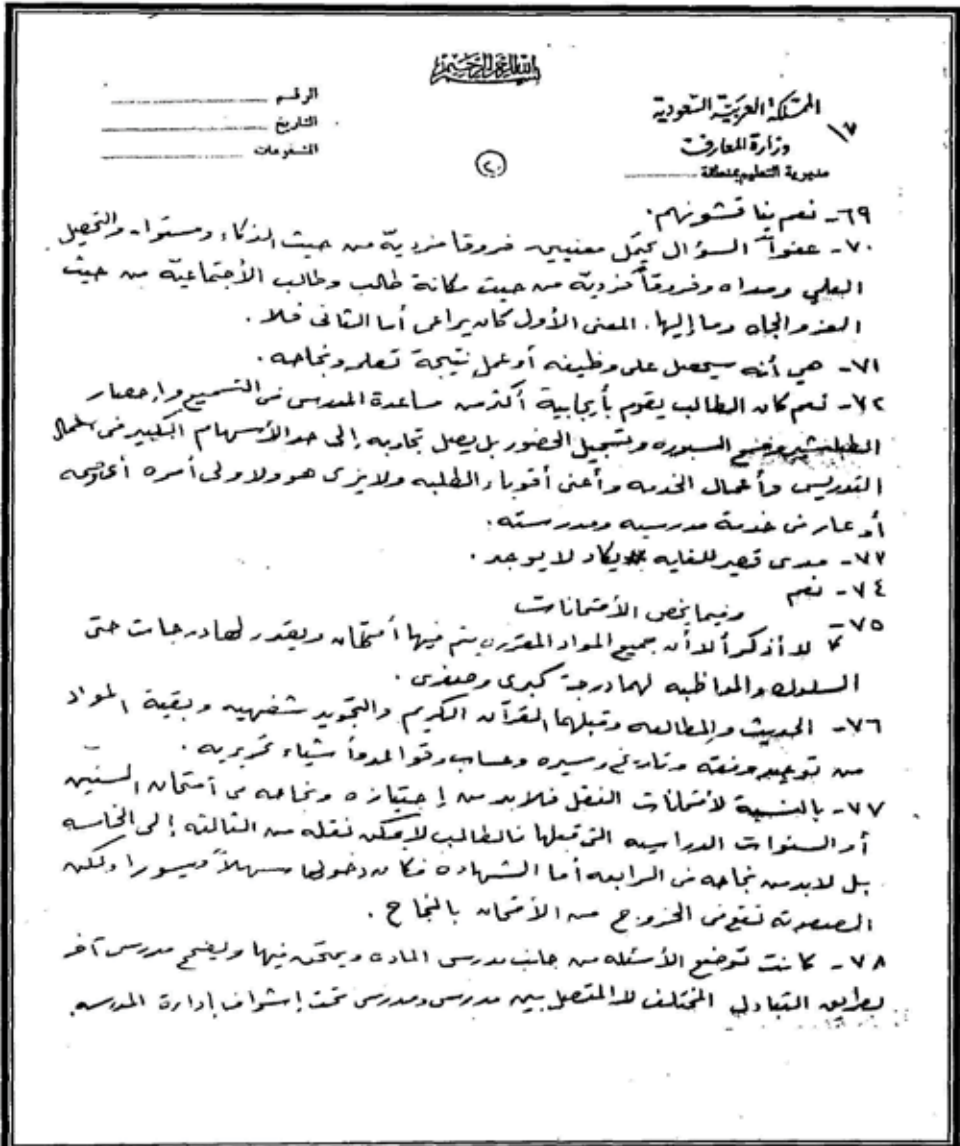 بسم الله الرحمن الرحيم
المملكة العربية السعودية
وزارة المعارف
مديرية التعليم بمنطقة
١٧
الرقم
التاريخ
المشفوعات
٢٠
٦٩- نعم يناقشونهم.
٧٠- عفواً السؤال يحتمل معنيين فروقا فردية من حيث الذكاء ومستوا والتحصيل
العلمي ومداه وفروقاً فردية من حيث مكانة طالب وطالب الأجتماعية من حيث
العز والجاه وما إليها. المعنى الأول كان يراعى أما الثانى فلا.
٧١- هي أنه سيحصل على وظيفه أو عمل نتيجة تعلمه ونجاحه.
٧٢- نعم كان الطالب يقوم بأيجابية أكثر من مساعدة المدرس فى التسميع وإحضار
الطباشير ومسح السبوره وتسجيل الحضور بل يصل تجاوبه إلى حد الأسهام الكبير فى
التدريس وأعمال الخدمه وأعنى أقوياء الطلبه ولا يرى هو ولا ولى أمره أى
أو عار فى خدمة مدرسيه ومدرسته.
٧٣- مدى قصير للغايه يكاد لا يوجد.
٧٤- نعم
وفيما يخص الأمتحانات
٧٥- لا أذكر ألا أن جميع المواد المقرره يتم فيها أمتحان ويقدر لها درجات حتى
السلوك والمواظبه لهما درجة كبرى وصغرى.
٧٦- الحديث والمطالعه وقبلهما القرآن الكريم والتجويد شفهيه وبقية المواد
من توحيد وفقه وتاريخ وسيره وحساب وقواعد وأنشاء تحريريه.
٧٧- بالنسبة لأمتحانات النقل فلابد من إجتيازه ونجاحه فى أمتحان السنين
أو السنوات الدراسيه التى قبلها فالطالب لا يمكن نقله من الثالثه إلى الخامسه
بل لابد من نجاحه فى الرابعه أما الشهاده فكان دخولها سهلاً ميسورا ولكن
الصعوبة تقع فى الخروج من الأمتحان بالنجاح.
٧٨- كانت توضع الأسئله من جانب مدرس الماده ويمتحن فيها ويصحح مدرس آخر
بطريق التبادل المختلف لا المتصل بين مدرس ومدرس تحت إشراف إدارة المدرسه.